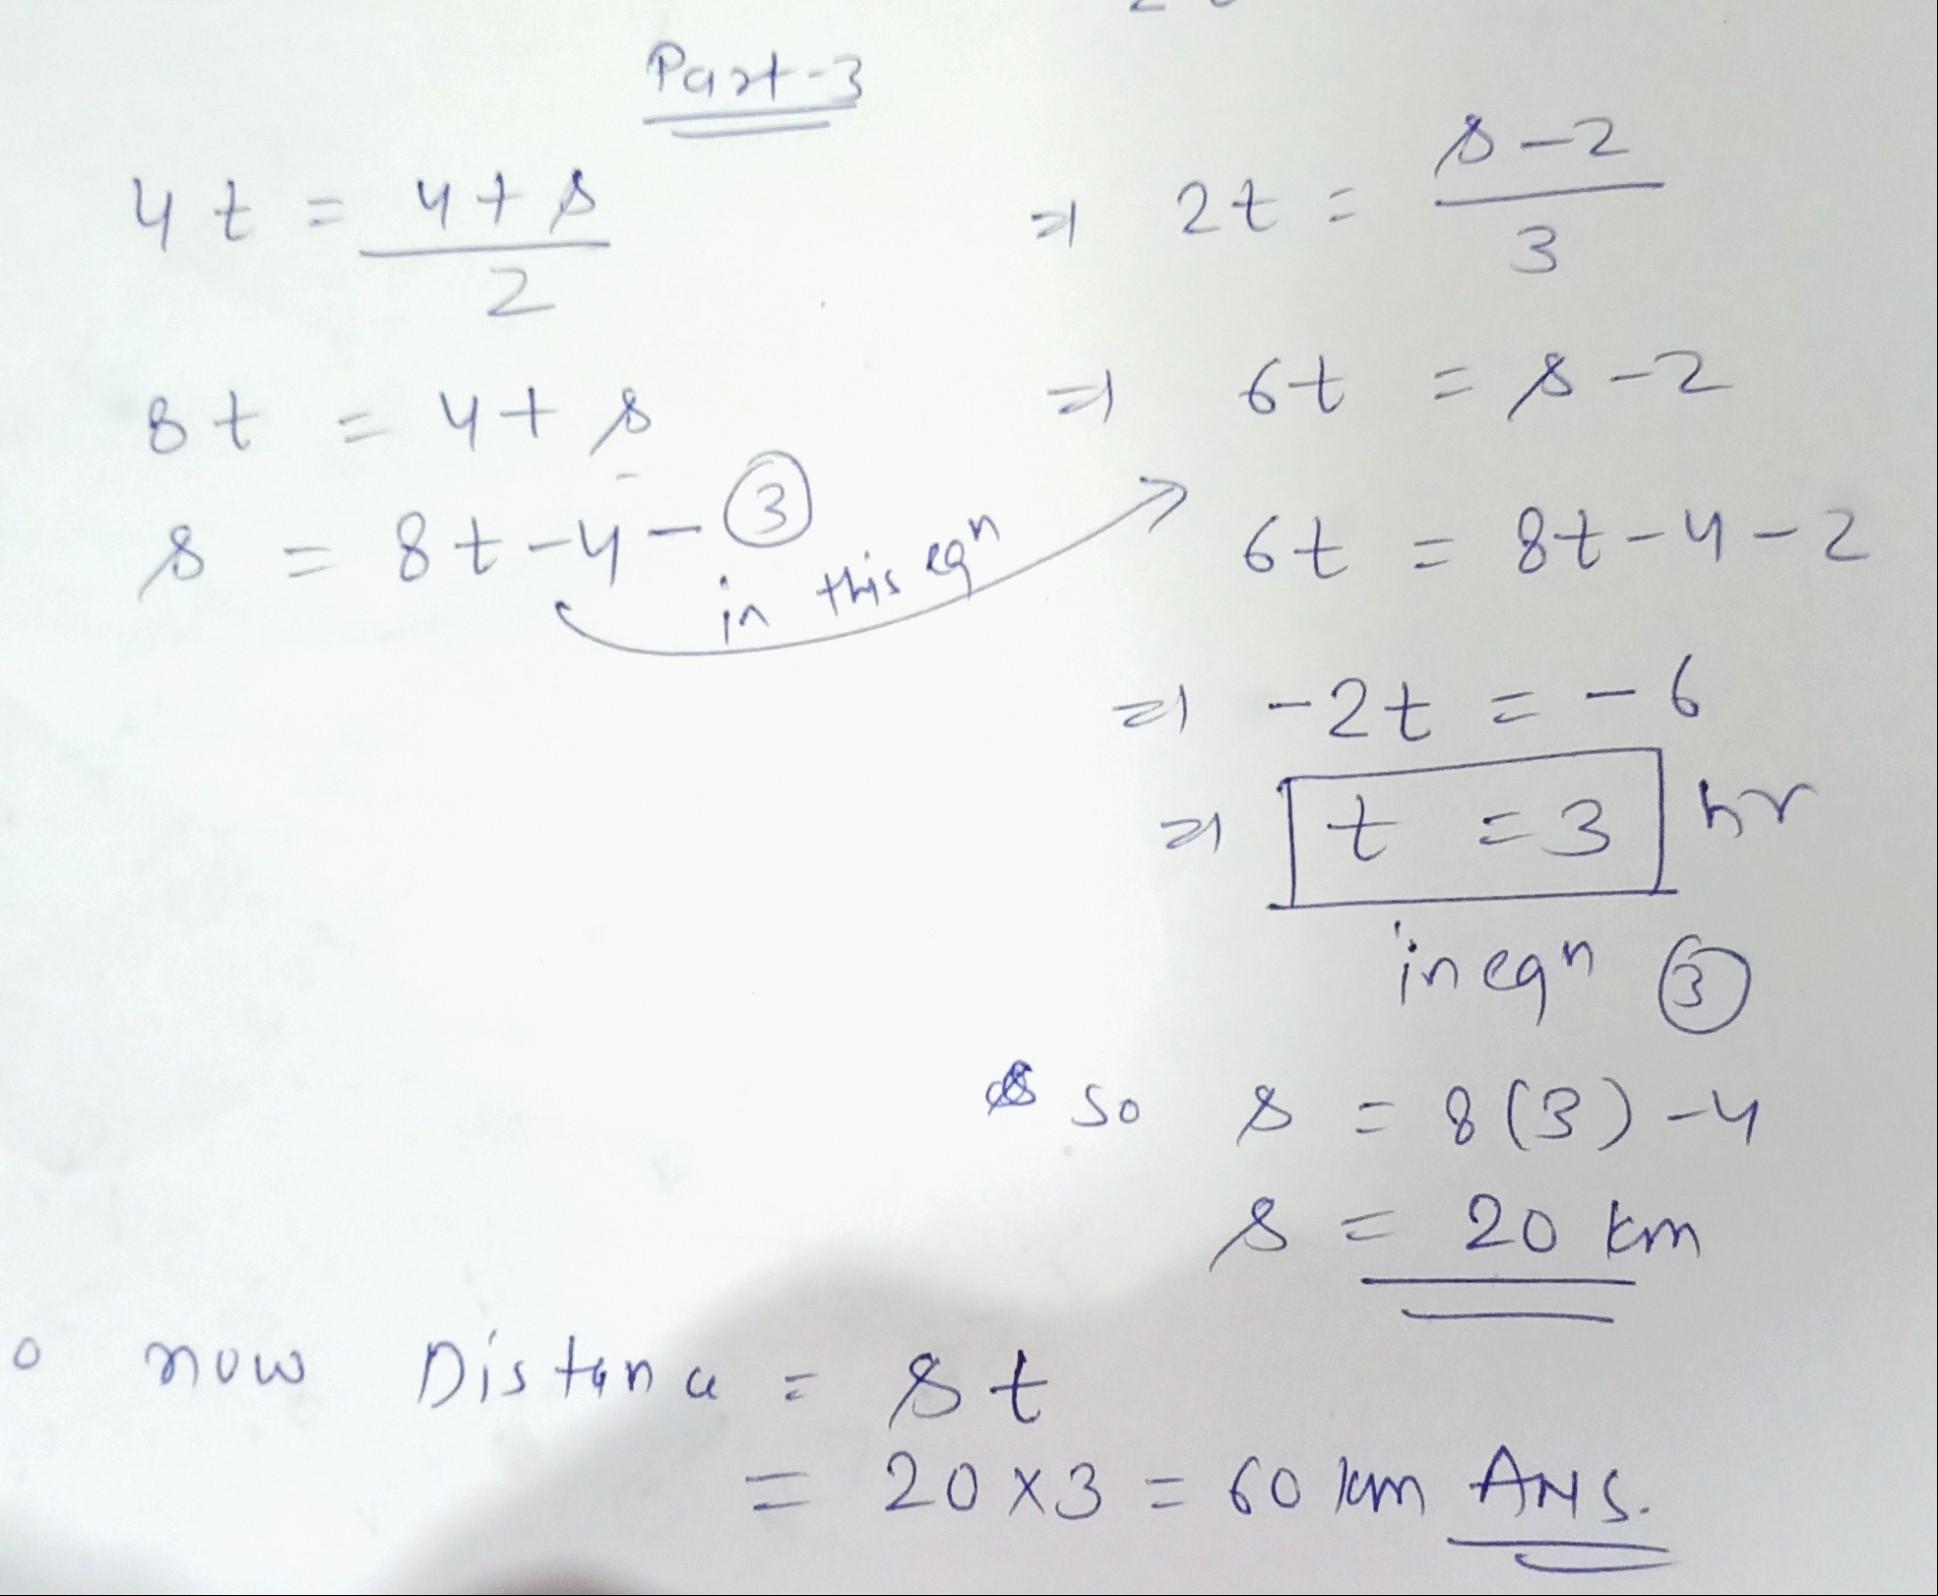 Part-3
4t = 4+s
2
8t = 4+s
s = 8t-4 - ③
in this eqn
⇒ 2t = s-2
3
⇒ 6t = s-2
6t = 8t-4-2
⇒ -2t = -6
⇒ t = 3 hr
in eqn ③
so s = 8(3)-4
s = 20 km
now Distance = st
= 20×3 = 60 km ANS.